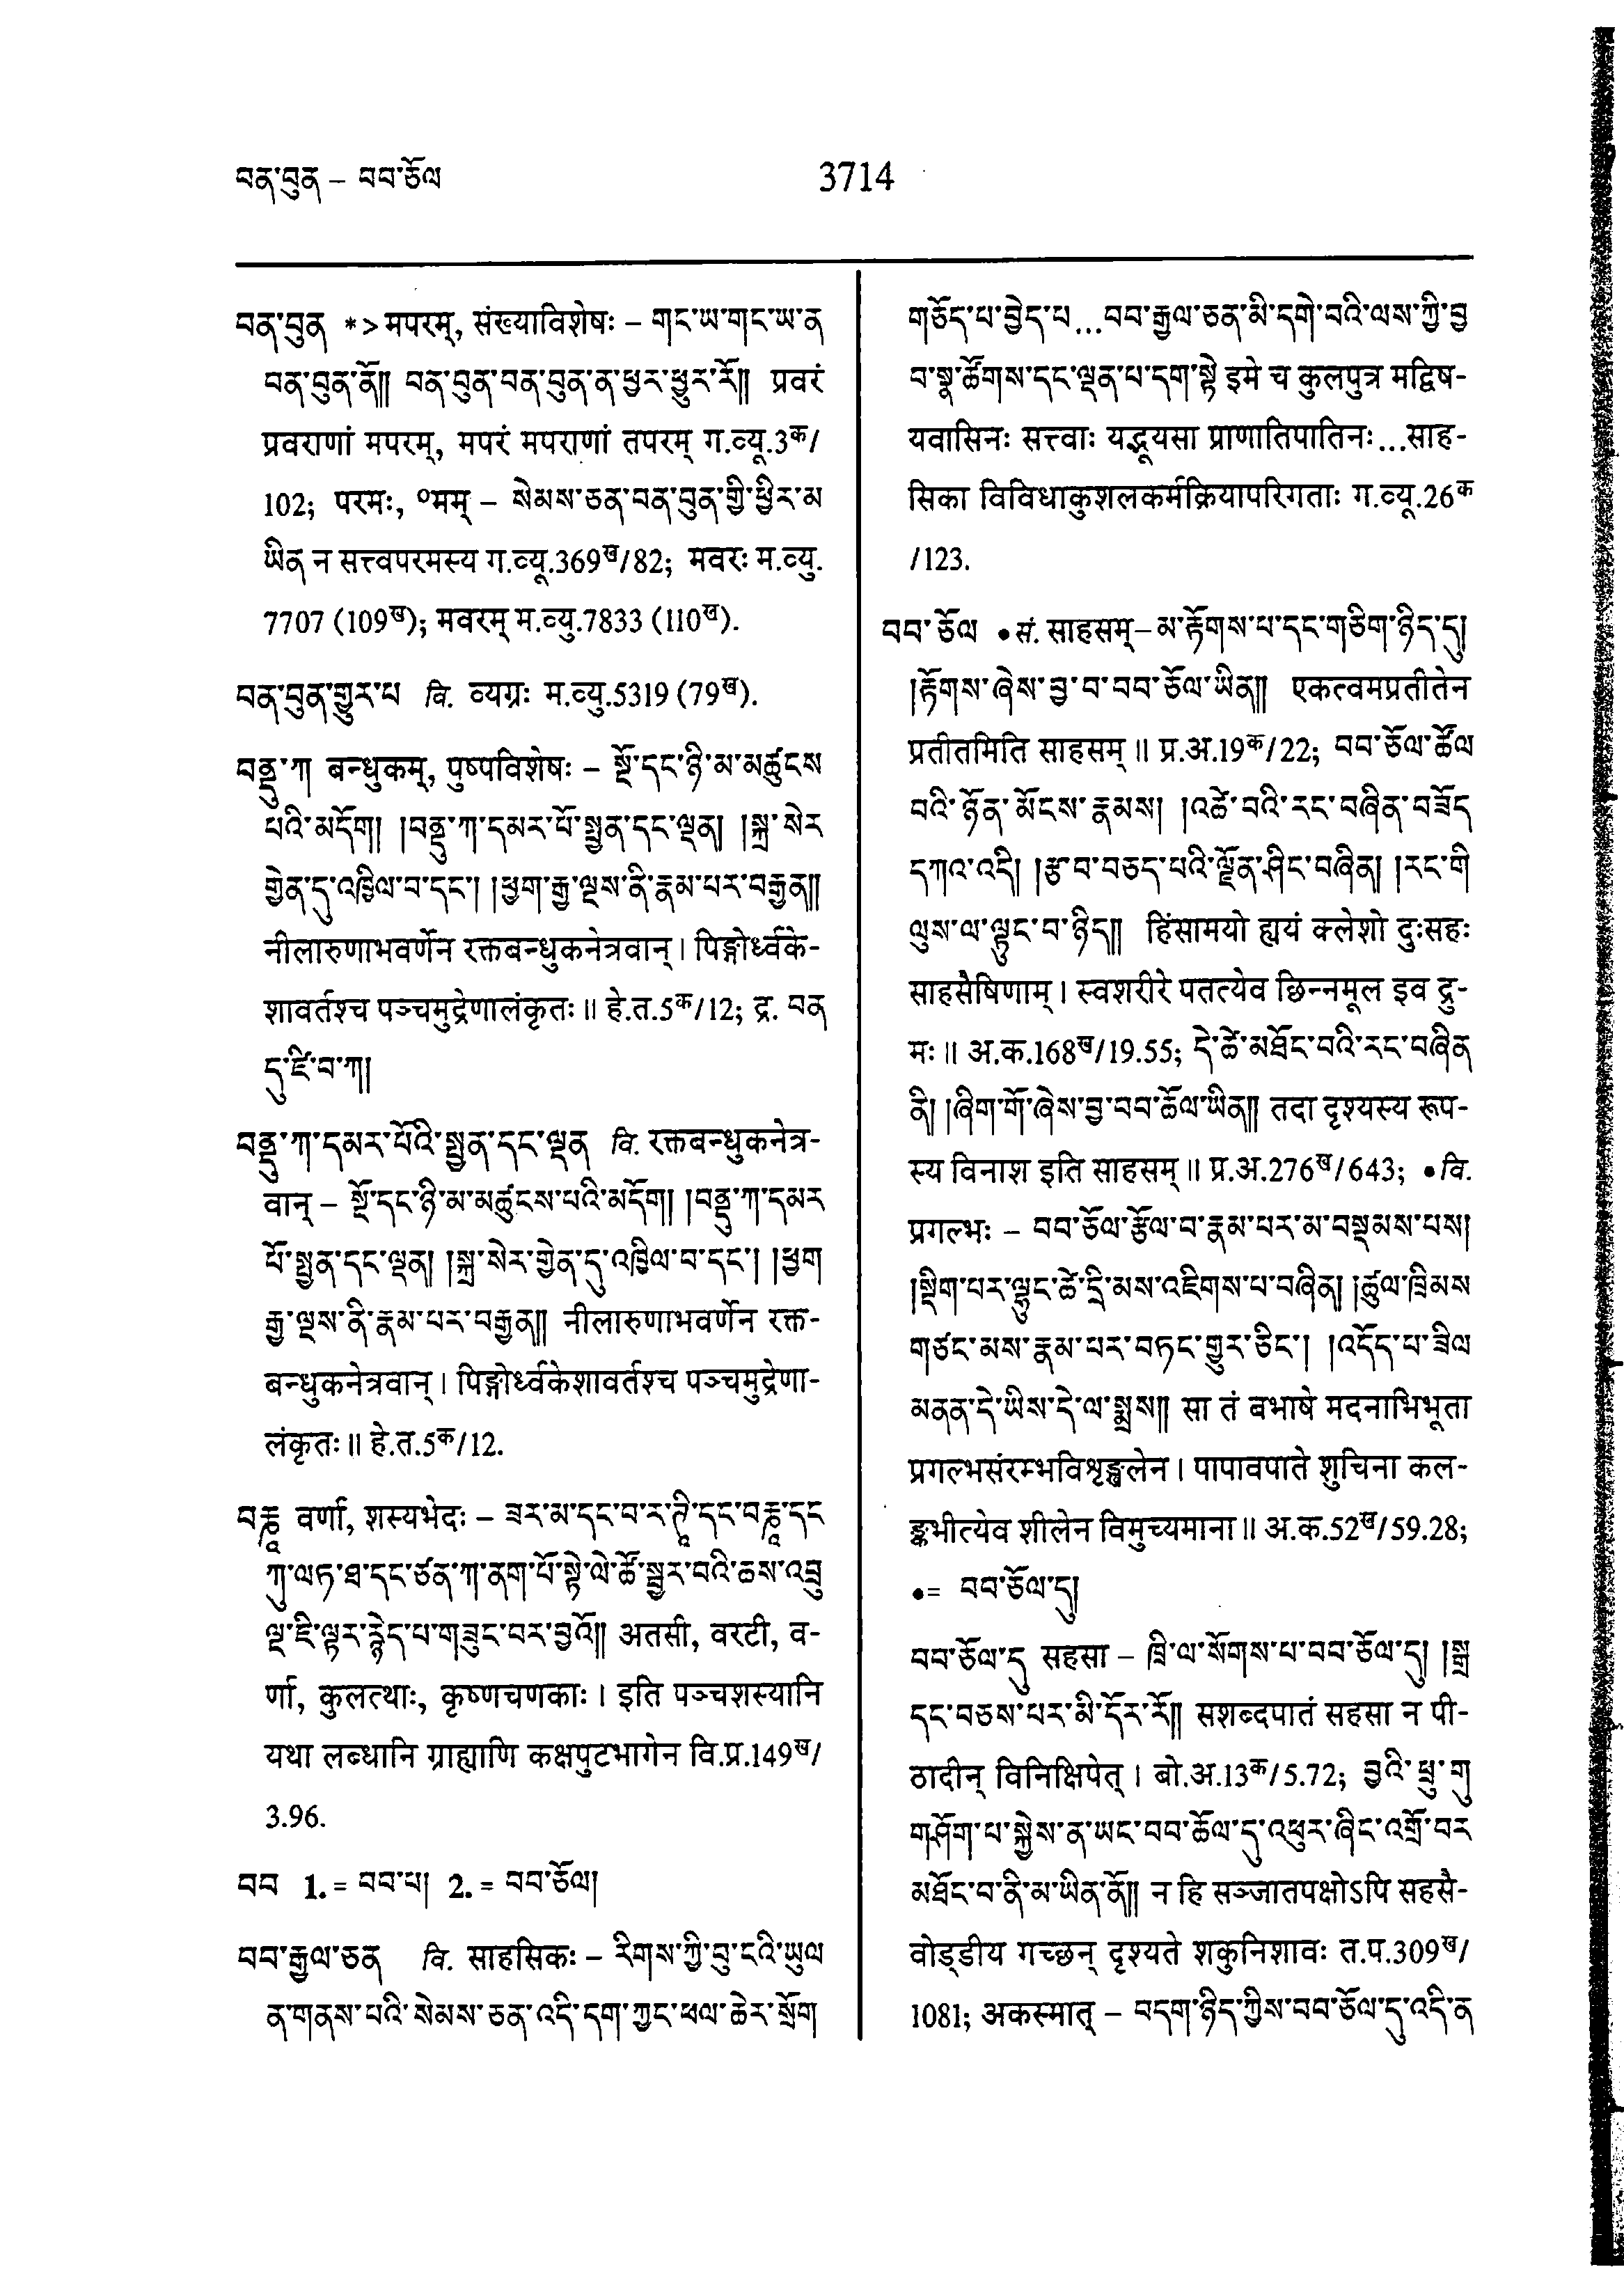 བན་བུན – བབ་ཅོལ
3714
བན་བུན *> मपरम्, संख्याविशेषः – གང་ཡ་གང་ཡ་ན
བན་བུན་ནོ།། བན་བུན་བན་བུན་ན་ཕྱར་ཕྱུར་རོ།། प्रवरं
प्रवराणां मपरम्, मपरं मपराणां तपरम् ग.व्यू.3क/
102; परमः, ०मम् – སེམས་ཅན་བན་བུན་གྱི་ཕྱིར་མ
ཡིན न सत्त्वपरमस्य ग.व्यू.369ख/82; मवरः म.व्यु.
7707 (109ख); मवरम् म.व्यु.7833 (110ख).
བན་བུན་གྱུར་པ वि. व्यग्रः म.व्यु.5319 (79ख).
བནྡུ་ཀ बन्धुकम्, पुष्पविशेषः – སྔོ་དང་ཉི་མ་མཚུངས
པའི་མདོག། །བནྡུ་ཀ་དམར་པོ་སྤྱན་དང་ལྡན། །སྐྲ་སེར
གྱེན་དུ་འཁྱིལ་བ་དང་། །ཕྱག་རྒྱ་ལྔས་ནི་རྣམ་པར་བརྒྱན།།
नीलारुणाभवर्णेन रक्तबन्धुकनेत्रवान्। पिङ्गोर्ध्वके-
शावर्तश्च पञ्चमुद्रेणालंकृतः॥ हे.त.5क/12; द्र. བན
དུ་ཛི་བ་ཀ།
བནྡུ་ཀ་དམར་པོའི་སྤྱན་དང་ལྡན वि. रक्तबन्धुकनेत्र-
वान् – སྔོ་དང་ཉི་མ་མཚུངས་པའི་མདོག། །བནྡུ་ཀ་དམར
པོ་སྤྱན་དང་ལྡན། །སྐྲ་སེར་གྱེན་དུ་འཁྱིལ་བ་དང་། །ཕྱག
རྒྱ་ལྔས་ནི་རྣམ་པར་བརྒྱན།། नीलारुणाभवर्णेन रक्त-
बन्धुकनेत्रवान्। पिङ्गोर्ध्वकेशावर्तश्च पञ्चमुद्रेणा-
लंकृतः॥ हे.त.5क/12.
वर्णा, शस्यभेदः – ཟར་མ་དང་བ་ར་ཊཱི་དང་ དང
ཀུ་ལཏ་ཐ་དང་ཙན་ཀ་ནག་པོ་སྟེ་ལེ་ཚོ་སྦྱར་བའི་ཆས་འབྲུ
ལྔ་ཇི་ལྟར་རྙེད་པ་གཟུང་བར་བྱའོ།། अतसी, वरटी, व-
र्णा, कुलत्थाः, कृष्णचणकाः। इति पञ्चशस्यानि
यथा लब्धानि ग्राह्याणि कक्षपुटभागेन वि.प्र.149ख/
3.96.
བབ 1. = བབ་པ། 2. = བབ་ཅོལ།
བབ་རྒྱལ་ཅན वि. साहसिकः – རིགས་ཀྱི་བུ་ངའི་ཡུལ
ན་གནས་པའི་སེམས་ཅན་འདི་དག་ཀྱང་ཕལ་ཆེར་སྲོག
གཅོད་པ་བྱེད་པ...བབ་རྒྱལ་ཅན་མི་དགེ་བའི་ལས་ཀྱི་བྱ
བ་སྣ་ཚོགས་དང་ལྡན་པ་དག་སྟེ इमे च कुलपुत्र मद्विष-
यवासिनः सत्त्वाः यद्भूयसा प्राणातिपातिनः...साह-
सिका विविधाकुशलकर्मक्रियापरिगताः ग.व्यू.26क
/123.
བབ་ཅོལ ● सं. साहसम् – མ་རྟོགས་པ་དང་གཅིག་ཉིད་དུ།
།རྟོགས་ཞེས་བྱ་བ་བབ་ཅོལ་ཡིན།། एकत्वमप्रतीतेन
प्रतीतमिति साहसम्॥ प्र.अ.19क/22; བབ་ཅོལ་ཚོལ
བའི་ཉོན་མོངས་རྣམས། །འཚེ་བའི་རང་བཞིན་བཟོད
དཀའ་འདི། །རྩ་བ་བཅད་པའི་ལྗོན་ཤིང་བཞིན། །རང་གི
ལུས་ལ་ལྟུང་བ་ཉིད།། हिंसामयो ह्ययं क्लेशो दुःसहः
साहसैषिणाम्। स्वशरीरे पतत्येव छिन्नमूल इव द्रु-
मः॥ अ.क.168ख/19.55; དེ་ཚེ་མཐོང་བའི་རང་བཞིན
ནི། །ཞིག་གོ་ཞེས་བྱ་བབ་ཆོལ་ཡིན།། तदा दृश्यस्य रूप-
स्य विनाश इति साहसम्॥ प्र.अ.276ख/643; ● वि.
प्रगल्भः – བབ་ཅོལ་རྩོལ་བ་རྣམ་པར་མ་བསྡམས་པས།
།སྡིག་པར་ལྟུང་ཚེ་དྲི་མས་འཇིགས་པ་བཞིན། །ཚུལ་ཁྲིམས
གཙང་མས་རྣམ་པར་བཏང་གྱུར་ཅིང་། །འདོད་པ་ཟིལ
མནན་དེ་ཡིས་དེ་ལ་སྨྲས།། सा तं बभाषे मदनाभिभूता
प्रगल्भसंरम्भविशृङ्खलेन। पापावपाते शुचिना कल-
ङ्कभीत्येव शीलेन विमुच्यमाना॥ अ.क.52ख/59.28;
● = བབ་ཅོལ་དུ།
བབ་ཅོལ་དུ सहसा – ཁྲི་ལ་སོགས་པ་བབ་ཅོལ་དུ། །སྒྲ
དང་བཅས་པར་མི་དོར་རོ།། सशब्दपातं सहसा न पी-
ठादीन् विनिक्षिपेत्। बो.अ.13क/5.72; བྱའི་ཕྲུ་གུ
གཤོག་པ་སྐྱེས་ན་ཡང་བབ་ཆོལ་དུ་འཕུར་ཞིང་འགྲོ་བར
མཐོང་བ་ནི་མ་ཡིན་ནོ།། न हि सञ्जातपक्षोऽपि सहसै-
वोड्डीय गच्छन् दृश्यते शकुनिशावः त.प.309ख/
1081; अकस्मात् – བདག་ཉིད་ཀྱིས་བབ་ཅོལ་དུ་འདི་ན